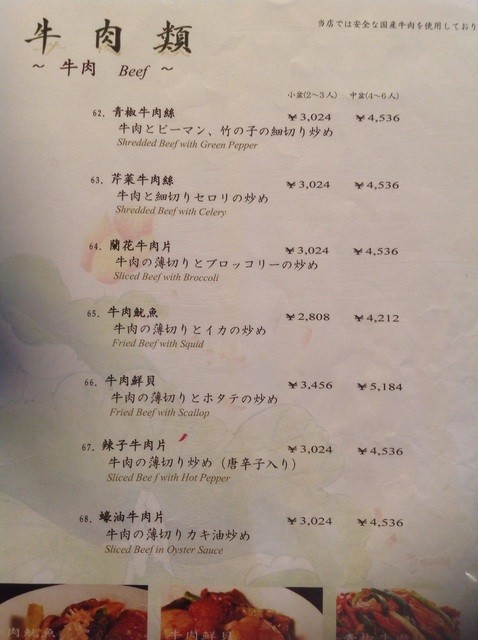 当店では安全な国産牛肉を使用しており
牛肉類
～ 牛肉 Beef ～
小盆(2～3人) 中盆(4～6人)
62. 青椒牛肉絲 ¥3,024 ¥4,536
牛肉とピーマン、竹の子の細切り炒め
Shredded Beef with Green Pepper
63. 芹菜牛肉絲 ¥3,024 ¥4,536
牛肉と細切りセロリの炒め
Shredded Beef with Celery
64. 蘭花牛肉片 ¥3,024 ¥4,536
牛肉の薄切りとブロッコリーの炒め
Sliced Beef with Broccoli
65. 牛肉魷魚 ¥2,808 ¥4,212
牛肉の薄切りとイカの炒め
Fried Beef with Squid
66. 牛肉鮮貝 ¥3,456 ¥5,184
牛肉の薄切りとホタテの炒め
Fried Beef with Scallop
67. 辣子牛肉片 ¥3,024 ¥4,536
牛肉の薄切り炒め（唐辛子入り）
Sliced Beef with Hot Pepper
68. 蠔油牛肉片 ¥3,024 ¥4,536
牛肉の薄切りカキ油炒め
Sliced Beef in Oyster Sauce
肉魷魚 牛肉鮮貝